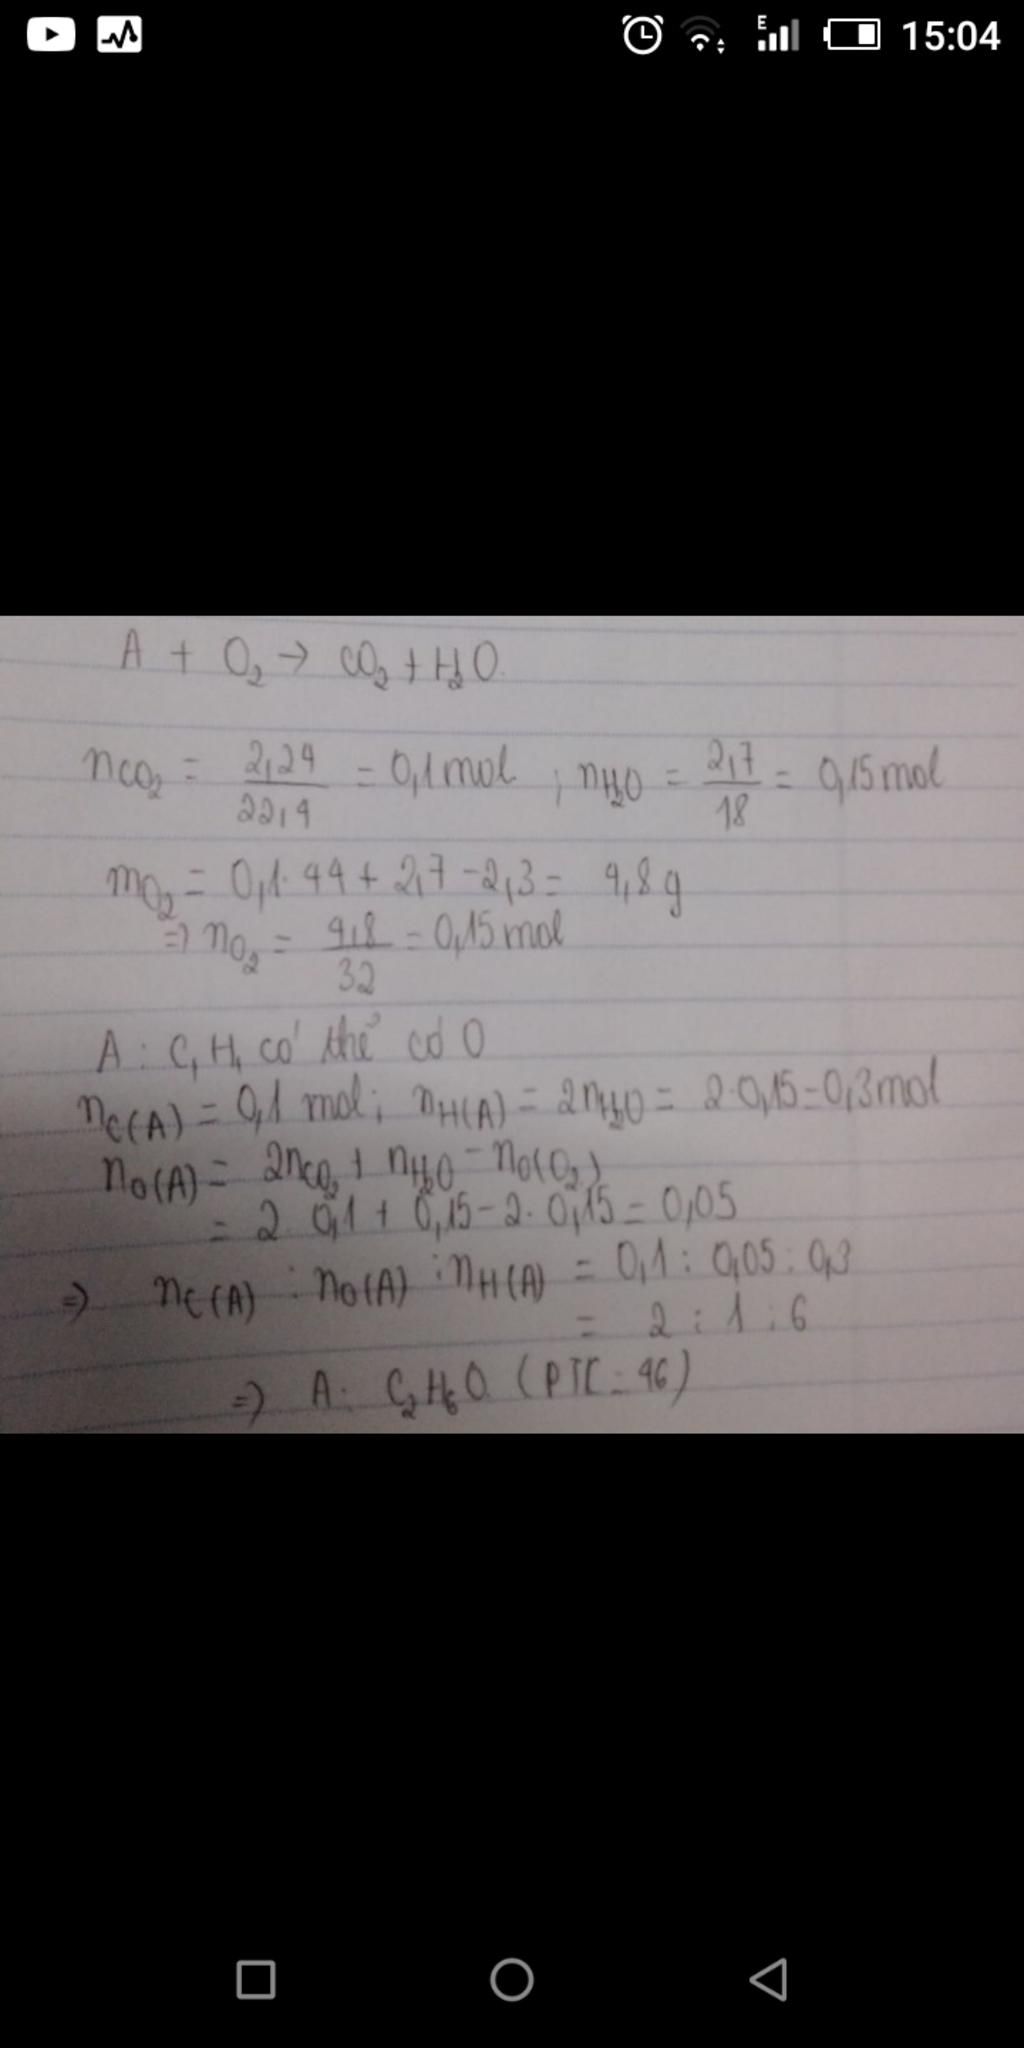 E 15:04
A + O₂ → CO₂ + H₂O.
nCO₂ = 2,24/22,4 = 0,1 mol ; nH₂O = 2,7/18 = 0,15 mol
mO₂ = 0,1. 44 + 2,7 - 2,3 = 4,8 g
=> nO₂ = 4,8/32 = 0,15 mol
A : C, H, có thể có O
nC(A) = 0,1 mol; nH(A) = 2nH₂O = 2.0,15 = 0,3 mol
nO(A) = 2nCO₂ + nH₂O - nO(O₂)
= 2. 0,1 + 0,15 - 2. 0,15 = 0,05
=> nC(A) : nO(A) : nH(A) = 0,1 : 0,05 : 0,3
= 2 : 1 : 6
=> A: C₂H₆O. (PTK = 46)